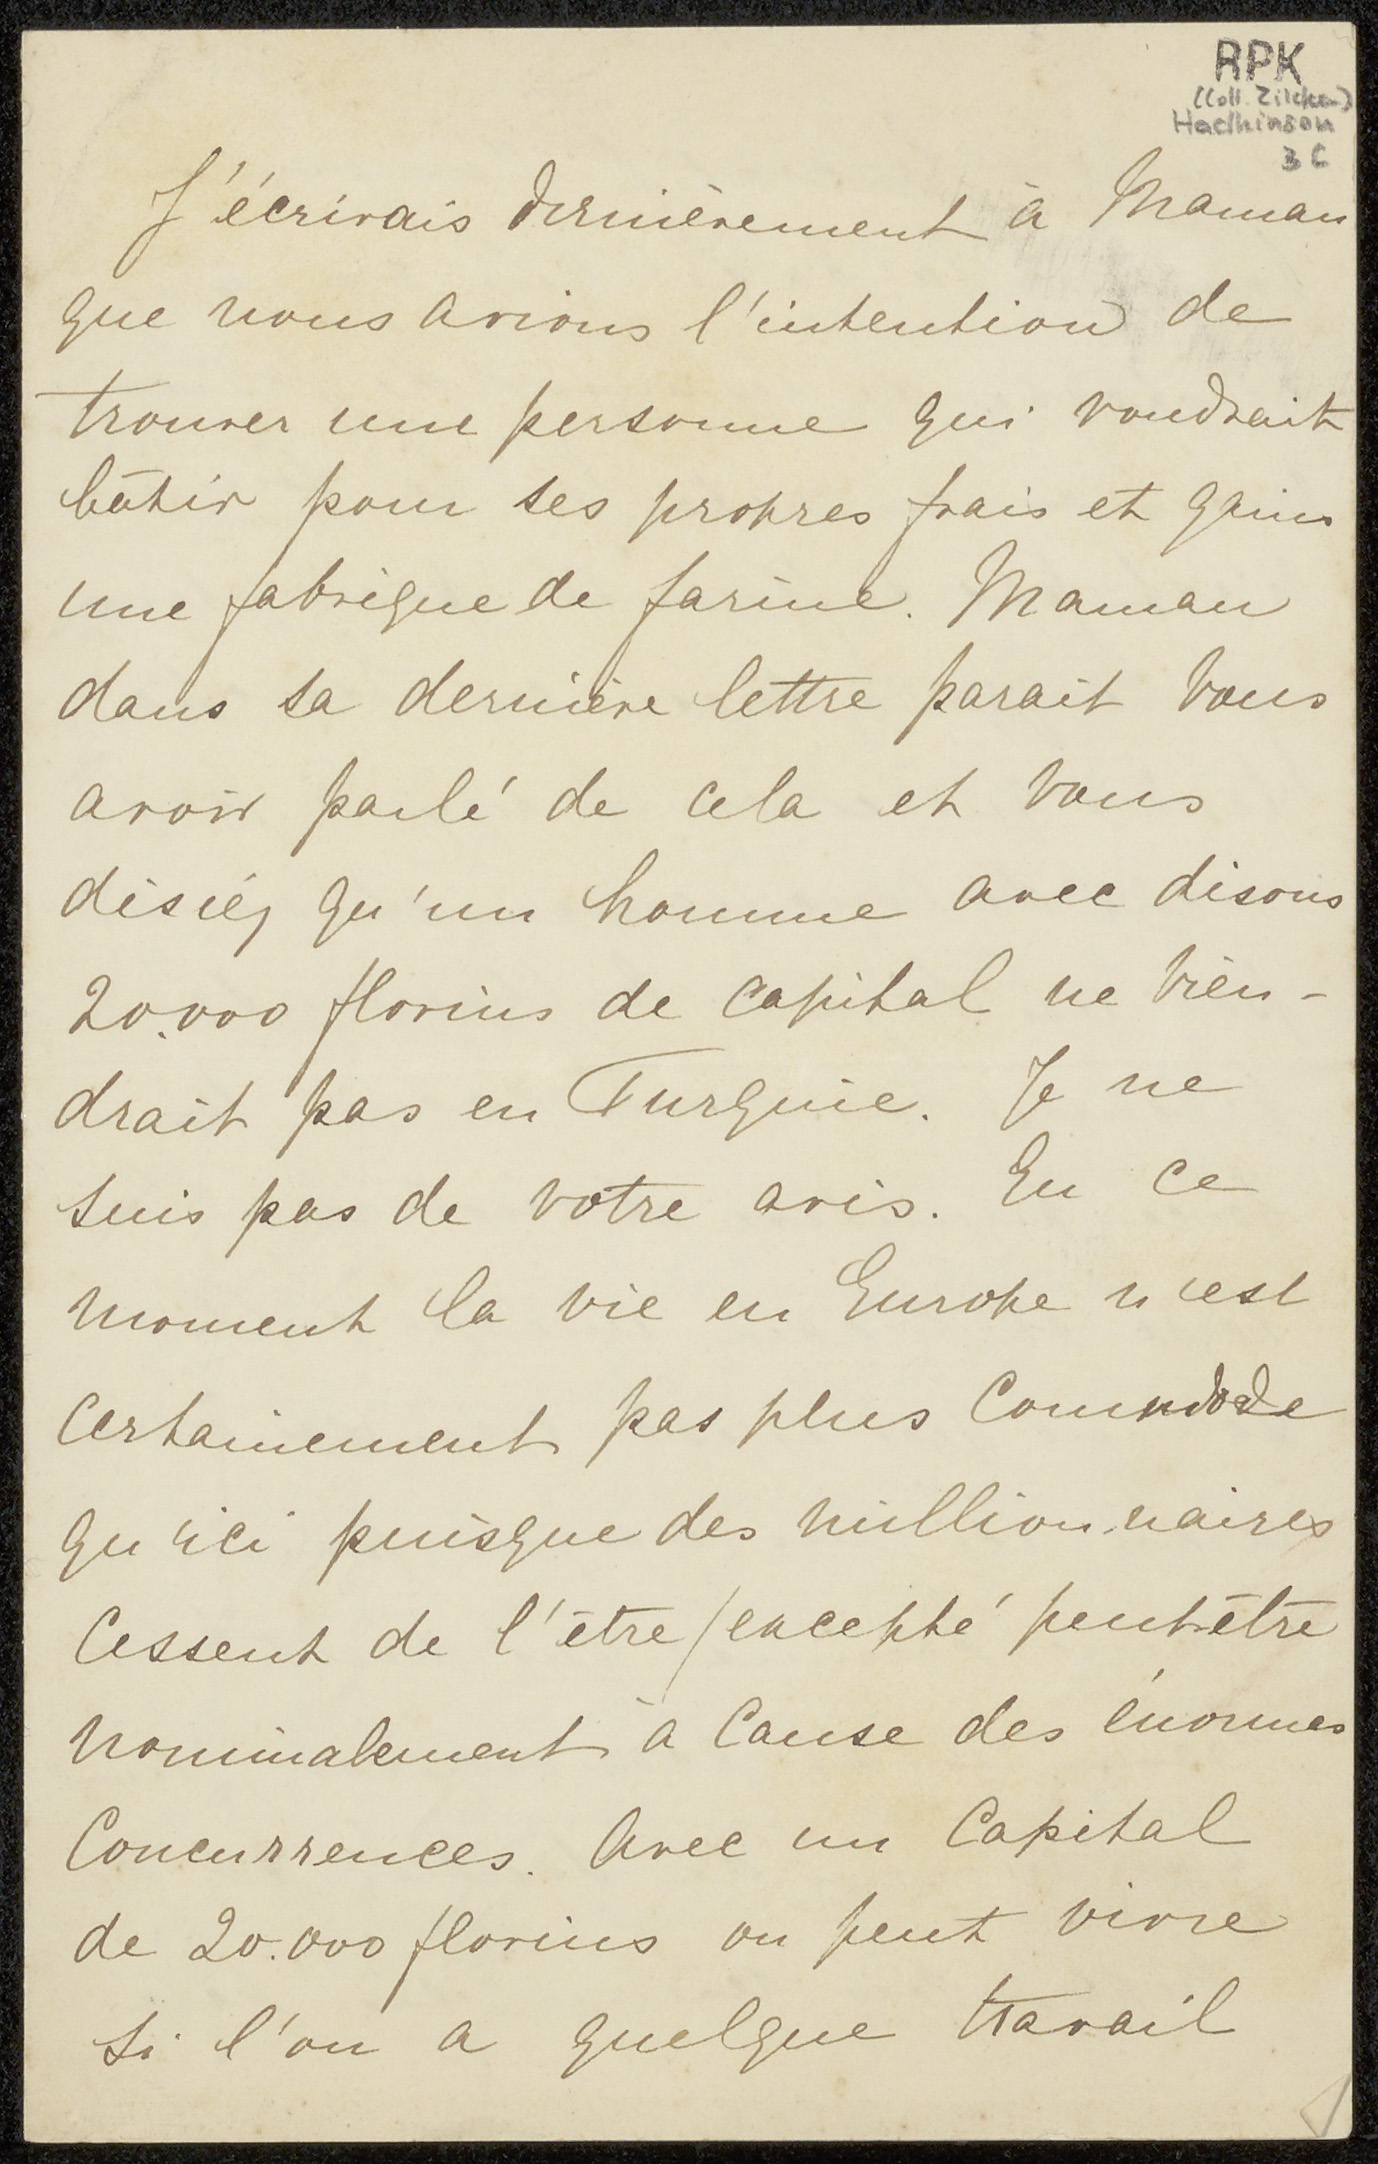 RPK
(Coll. Zilcken)
Hadhinson
3 C
J'écrivais dernièrement à Maman
que nous avions l'intention de
trouver une personne qui voudrait
bâtir pour ses propres frais et gains
une fabrique de farine. Maman
dans sa dernière lettre parait vous
avoir parlé de cela et vous
disiéz qu'un homme avec disons
20.000 florins de capital ne vien-
drait pas en Turquie. Je ne
suis pas de votre avis. En ce
moment la vie en Europe n'est
certainement pas plus commode
qu'ici puisque des millionnaires
cessent de l'être /excepté peut-être
nominalement à cause des énormes
concurrences. Avec un capital
de 20.000 florins on peut vivre
si l'on a quelque travail